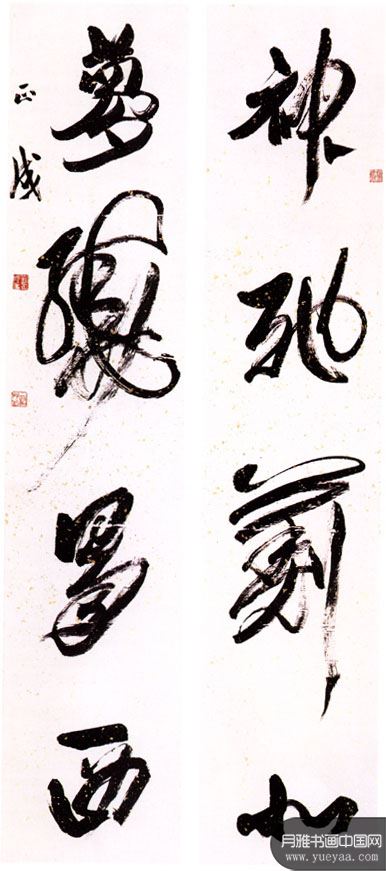 神馳薊北
夢繞蜀西
正成
月雅书画中国网
www.yueyaa.com